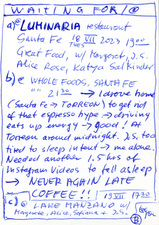 WAITING FOR/@
a) @ LUMINARIA restaurant
Santa Fe 18 VII 2023 1900
Great Food, w/ Hayward, J.S.
Alice Rose, Katya Salkinder
b) @ WHOLE FOODS, SANTA FE
" 2130 → I drove home
(Santa Fe → TORREON) to get rid
of that espresso hype → driving
eats up energy → good! At
Torreon around midnight. J.S. too
tired to sleep intend → me alone.
Needed another 1.5 hrs of
Instagram Videos to fall asleep
→ NEVER AGAIN LATE
COFFEE!! 1930
c) @ LAKE MANZANO w/
Hayward, Alice, J.S.